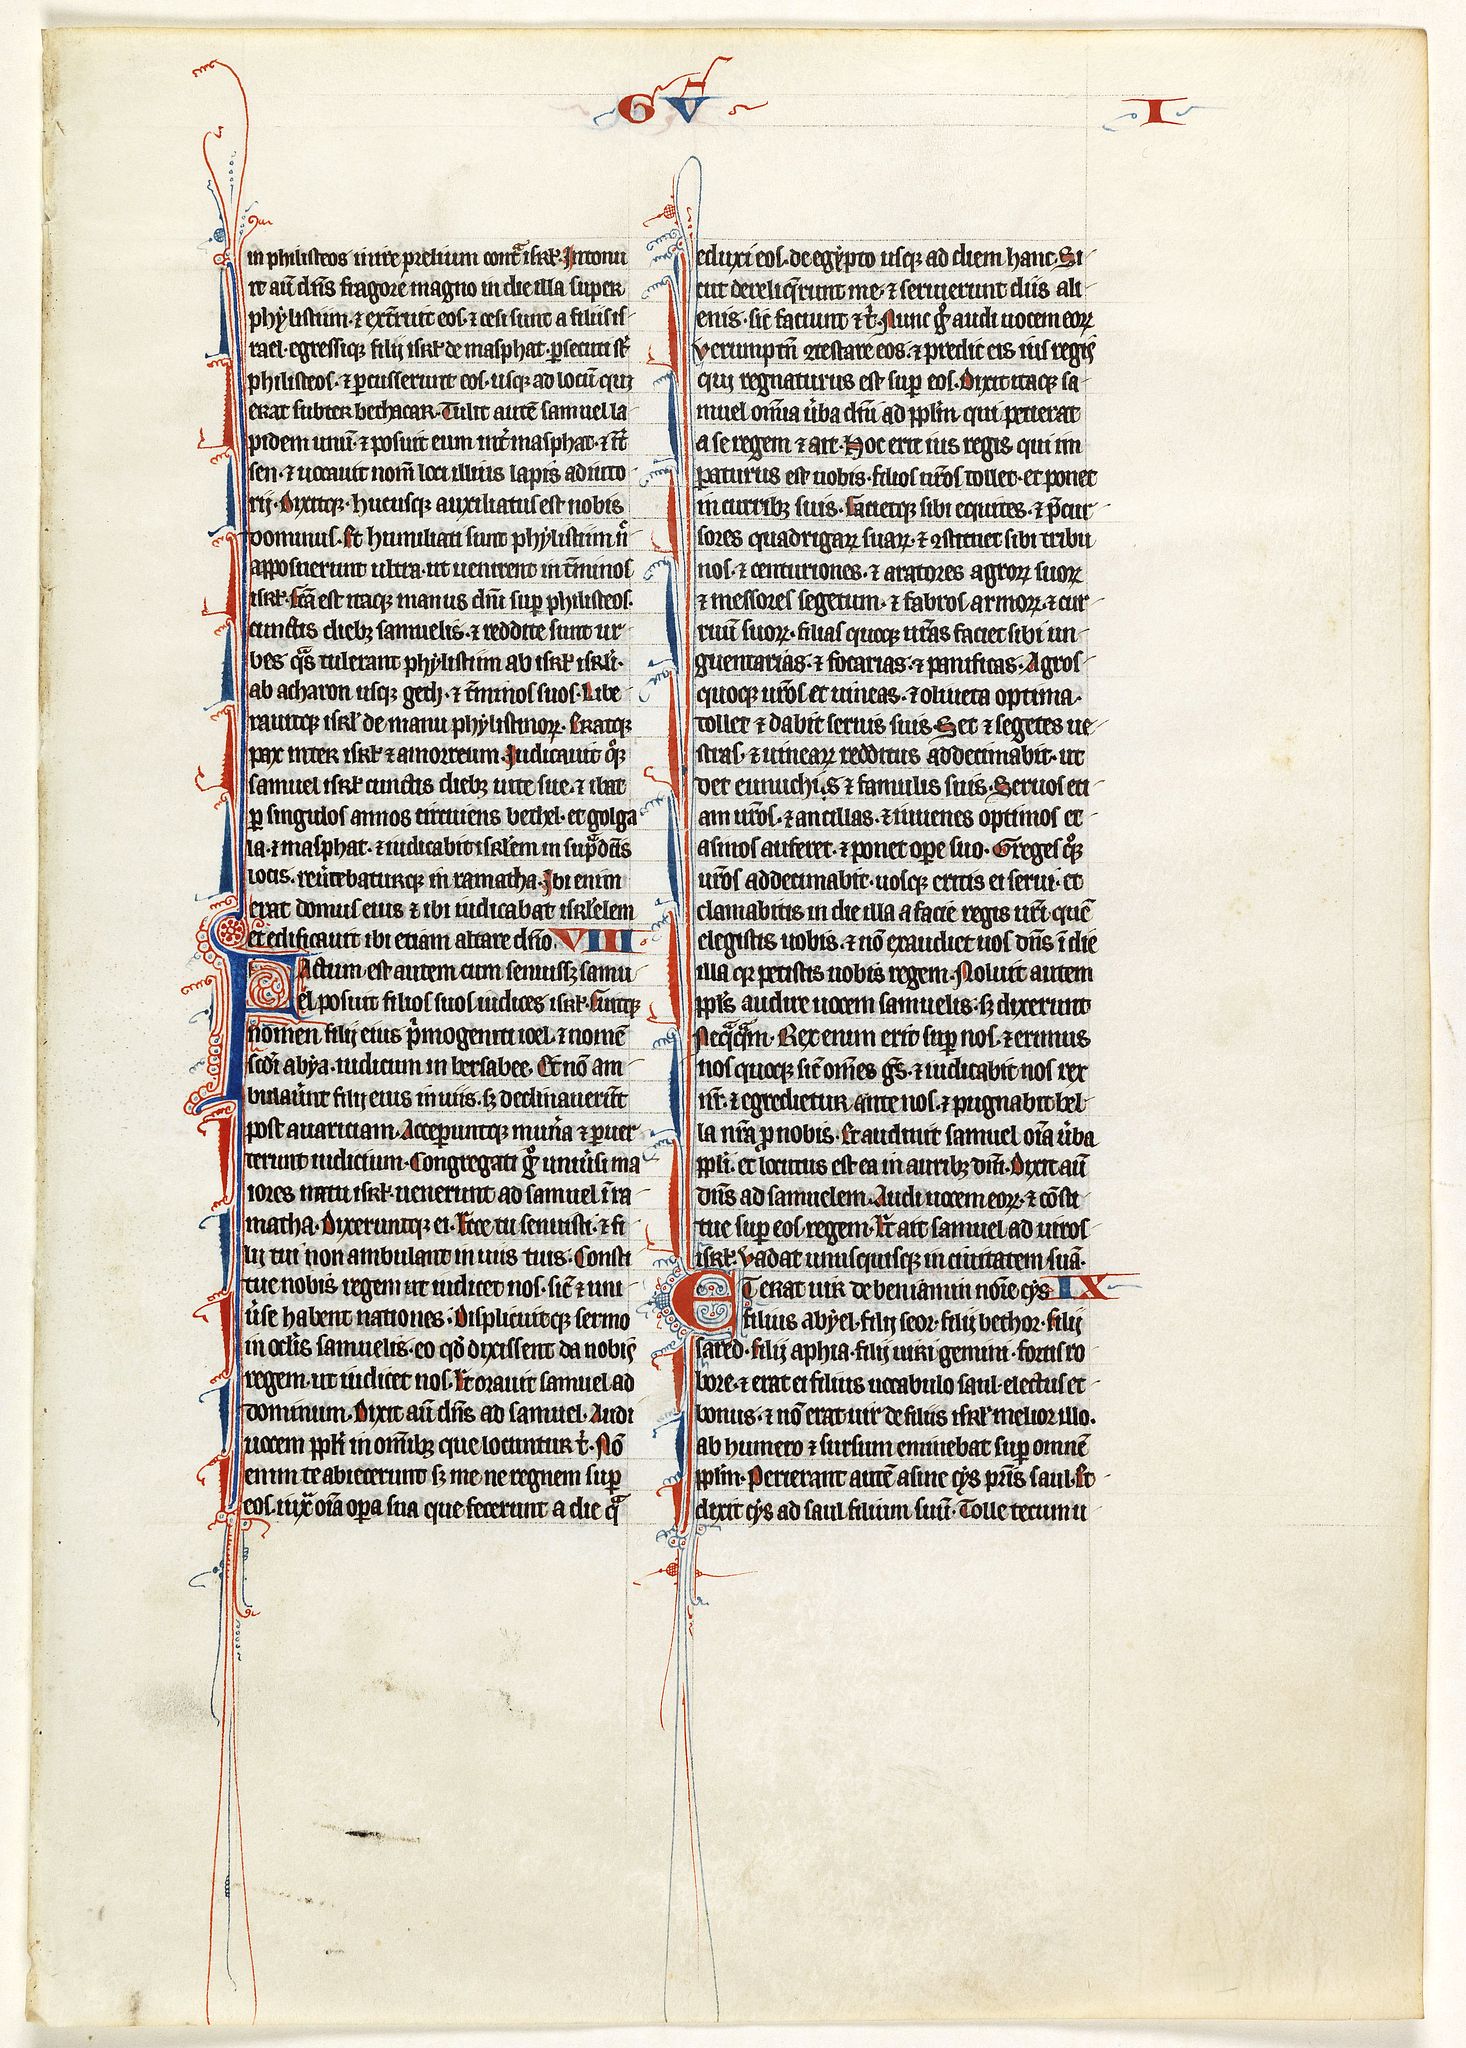 G V I
in philisteos inire prelium contᵃ isrł. Intonu
it aū dn̄s fragore magno in die illa super
phylistiim. ⁊ ext̄ruit eos. ⁊ cesi sunt a filiis is
rael. egressiqꝫ filij isrł de masphat. ꝑsecuti st̄
philisteos. ⁊ ꝑcusserunt eos. usqꝫ ad locū qui
erat subter bethacar. Tulit autē samuel la
pidem unū. ⁊ posuit eum int̄ masphat. ⁊ int̄
sen. ⁊ uocauit nom̄ loci illius lapis adiuto
rij. Dixitqꝫ. hucusqꝫ auxiliatus est nobis
dominus. Et humiliati sunt phylistiim n̄
apposuerunt ultra. ut uenirent in t̄minos
isrł. fc̄a est itaqꝫ manus dn̄i suꝑ philisteos.
cunctis diebꝫ samuelis. ⁊ reddite sunt ur
bes qᵃs tulerant phylistiim ab isrł isrłi.
ab acharon usqꝫ geth. ⁊ t̄minos suos. Libe
rauitqꝫ isrł de manu phylistinoꝝ. Eratqꝫ
pax inter isrł ⁊ amorreum. Iudicauit qͦqꝫ
samuel isrł cunctis diebꝫ uite sue. ⁊ ibat
ꝑ singulos annos circuiens bethel. et golga
la. ⁊ masphat. ⁊ iudicabit isrłem in supᵃdc̄is
locis. reūtebaturqꝫ in ramatha. Ibi enim
erat domus eius ⁊ ibi iudicabat isrłelem
et edificauit ibi etiam altare dn̄o. VIII
Factum est autem cum senuissꝫ samu
el posuit filios suos iudices isrł. fuitqꝫ
nomen filij eius pͥmogeniti ioel. ⁊ nomē
scdī abya. iudicum in bersabee. Et nō am
bulaūnt filij eius in uiis. sꝫ declinauerūt
post auariciam. Acceꝑuntqꝫ mun̄a ⁊ ꝑuer
terunt iudicium. Congregati gͦ uniūsi ma
iores natu isrł. uenerunt ad samuel ī ra
matha. Dixeruntqꝫ ei. Ecce tu senuisti. ⁊ fi
lij tui non ambulant in uiis tuis. Consti
tue nobis regem ut iudicet nos. sic̄ ⁊ uni
ūse habent nationes. Displicuitqꝫ sermo
in oc̄lis samuelis. eo qd̄ dixissent da nobis
regem. ut iudicet nos. Et orauit samuel ad
dominum. Dixit aū dn̄s ad samuel. Audi
uocem ppłi in om̄ibꝫ que locuntur t͛. Nō
enim te abiecerunt sꝫ me ne regnem suꝑ
eos. iuxᵃ oīa oꝑa sua que fecerunt a die qᵃ
eduxi eos. de egypto usqꝫ ad diem hanc. Si
cut dereliq̄runt me. ⁊ seruierunt diis ali
enis. sic faciunt ⁊ t͛. Nunc gͦ audi uocem eoꝝ
Verumptn̄ ꝯtestare eos. ⁊ predic eis ius regis
qui regnaturus est suꝑ eos. Dixit itaqꝫ sa
muel om̄ia ūba dn̄i ad ppłm qui petierat
a se regem ⁊ ait. Hoc erit ius regis qui im
ꝑaturus est uobis. filios ur̄os tollet. et ponet
in curribꝫ suis. facietqꝫ sibi equites. ⁊ p̄cur
sores quadrigaꝝ suaꝝ. ⁊ ꝯstituet sibi tribu
nos. ⁊ centuriones. ⁊ aratores agroꝝ suoꝝ
⁊ messores segetum. ⁊ fabros armoꝝ. ⁊ cur
ruū suoꝝ. filias quoqꝫ ur̄as faciet sibi un
guentarias. ⁊ focarias. ⁊ panificas. Agros
quoqꝫ ur̄os et uineas. ⁊ oliueta optima.
tollet ⁊ dabit seruis suis. Set ⁊ segetes ue
stras. ⁊ uineaꝝ redditus addecimabit. ut
det eunuchis ⁊ famulis suis. Seruos eti
am ur̄os. ⁊ ancillas. ⁊ iuuenes optimos et
asinos auferet. ⁊ ponet oꝑe suo. Greges qͦqꝫ
ur̄os addecimabit. uosqꝫ eritis ei serui. et
clamabitis in die illa a facie regis ur̄i quē
elegistis uobis. ⁊ nō exaudiet uos dn̄s ī die
illa qꝛ petistis uobis regem. Noluit autem
ppłs audire uocem samuelis. sꝫ dixerunt
Neqᵃqᵃm. Rex enim erit suꝑ nos. ⁊ erimus
nos quoqꝫ sic̄ om̄es gn̄s. ⁊ iudicabit nos rex
nr̄. ⁊ egredietur ante nos. ⁊ pugnabit bel
la nr̄a ꝓ nobis. Et audiuit samuel oīa ūba
ppłi. et locutus est ea in auribꝫ dn̄i. Dixit aū
dn̄s ad samuelem. Audi uocem eoꝝ. ⁊ cōsti
tue suꝑ eos regem. Et ait samuel ad uiros
isrł. Vadat unusquisqꝫ in ciuitatem suā.
Et erat uir de beniamin noīe cys IX
filius abyel. filij seor. filij bethor. filij
fared. filij aphia. filij uiri gemini. fortis ro
bore. ⁊ erat ei filius uocabulo saul. electus et
bonus. ⁊ nō erat uir de filiis isrł melior illo.
ab humero ⁊ sursum eminebat suꝑ omnē
ppłm. Perierant autē asine cys pr̄is saul. Et
dixit cys ad saul filium suū. Tolle tecum u